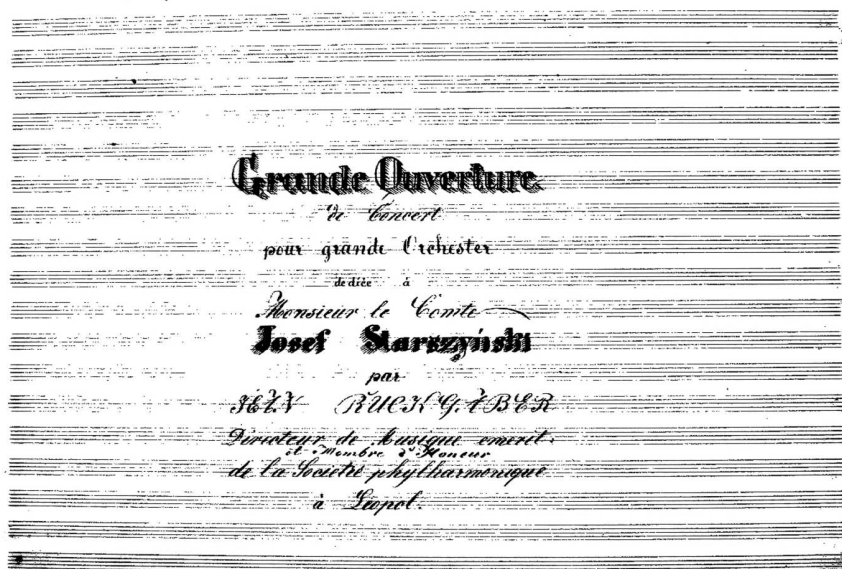 Grande Ouverture
de Concert
pour grande Orchester
dediée à
Monsieur le Comte
Josef Starszyński
par
JEAN RUCKGABER
Directeur de Musique emerit.
et Membre d'Honeur
de la Societé phylharmonique
à Léopol.